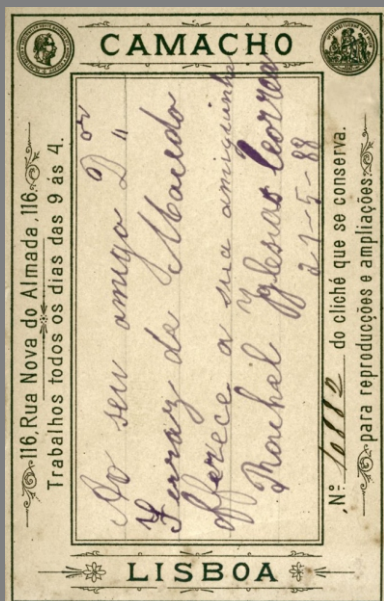 CAMACHO
116, Rua Nova do Almada, 116.
Trabalhos todos os dias das 9 ás 4.
Ao seu amigo Dor
Ferraz de Macedo
offerece a sua amiguinha
Rachel Yglesias Correa
27-5-88
N.º 10882 do cliché que se conserva.
para reproducções e ampliações.
LISBOA